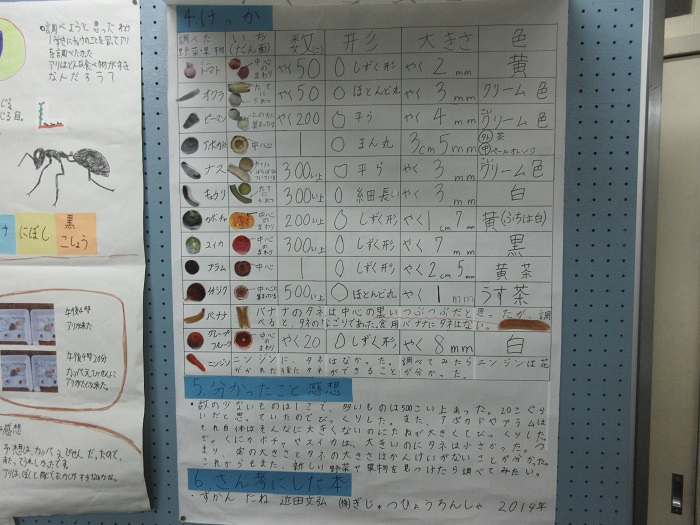 調べようと思ったわけ
なんだろう?
にぼし
黒
こしょう
午後4時
アリが来た
午後4時20分
感想
4.けっか
調べた
野菜・果物
いち
(だん面)
数(こ)
形
大きさ
色
トマト 中心のまわり やく50 しずく形 やく2mm 黄
オクラ たてに やく50 ほとんど丸 やく3mm クリーム色
ピーマン 上の方に やく200 平ら やく4mm クリーム色
アボカド 中心 1 まん丸 3cm5mm 外茶 中ペールオレンジ
ナス 300以上 平ら やく3mm クリーム色
キュウリ たてに 300以上 細長い やく3mm 白
カボチャ 中心のまわり 200以上 しずく形 やく1cm7mm 黄(ふちは白)
スイカ 中心のまわり 300以上 しずく形 やく7mm 黒
プラム 中心 1 しずく形 やく2cm5mm 黄茶
イチジク 500以上 ほとんど丸 やく1mm うす茶
バナナ バナナのタネは中心の黒いつぶつぶだと思ったが、調
べると、タネのなごりであった。食用バナナにタネはない。
グレープフルーツ やく20 しずく形 やく8mm 白
ニンジン ニンジンに、タネはなかった。調べてみたらニンジンは花
がかれた後にタネができることが分かった。
5.分かったこと感想
・数の少ないものは1こで、多いものは500こい上あった。20こぐら
いだと思っていたのでびっくりした。また、アボカドやプラムは
もも自体はそんなに大きくないのにたねが大きくてびっくりした。
ぎゃくにカボチャやスイカは、大きいのにタネは小さかった。つ
まり、実の大きさとタネの大きさはかんけいがないことが分かった。
これからもまた、新しい野菜や果物を見つけたら調べてみたい。
6.さん考にした本
・ずかん たね 近田文弘 (株)ぎじゅつひょうろんしゃ 2014年